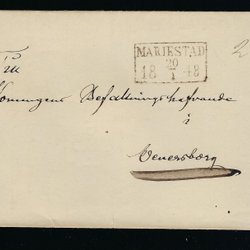 MARIESTAD
20
18 1 48
2
Till
Konungens Befallningshafvande
i
Wenersborg